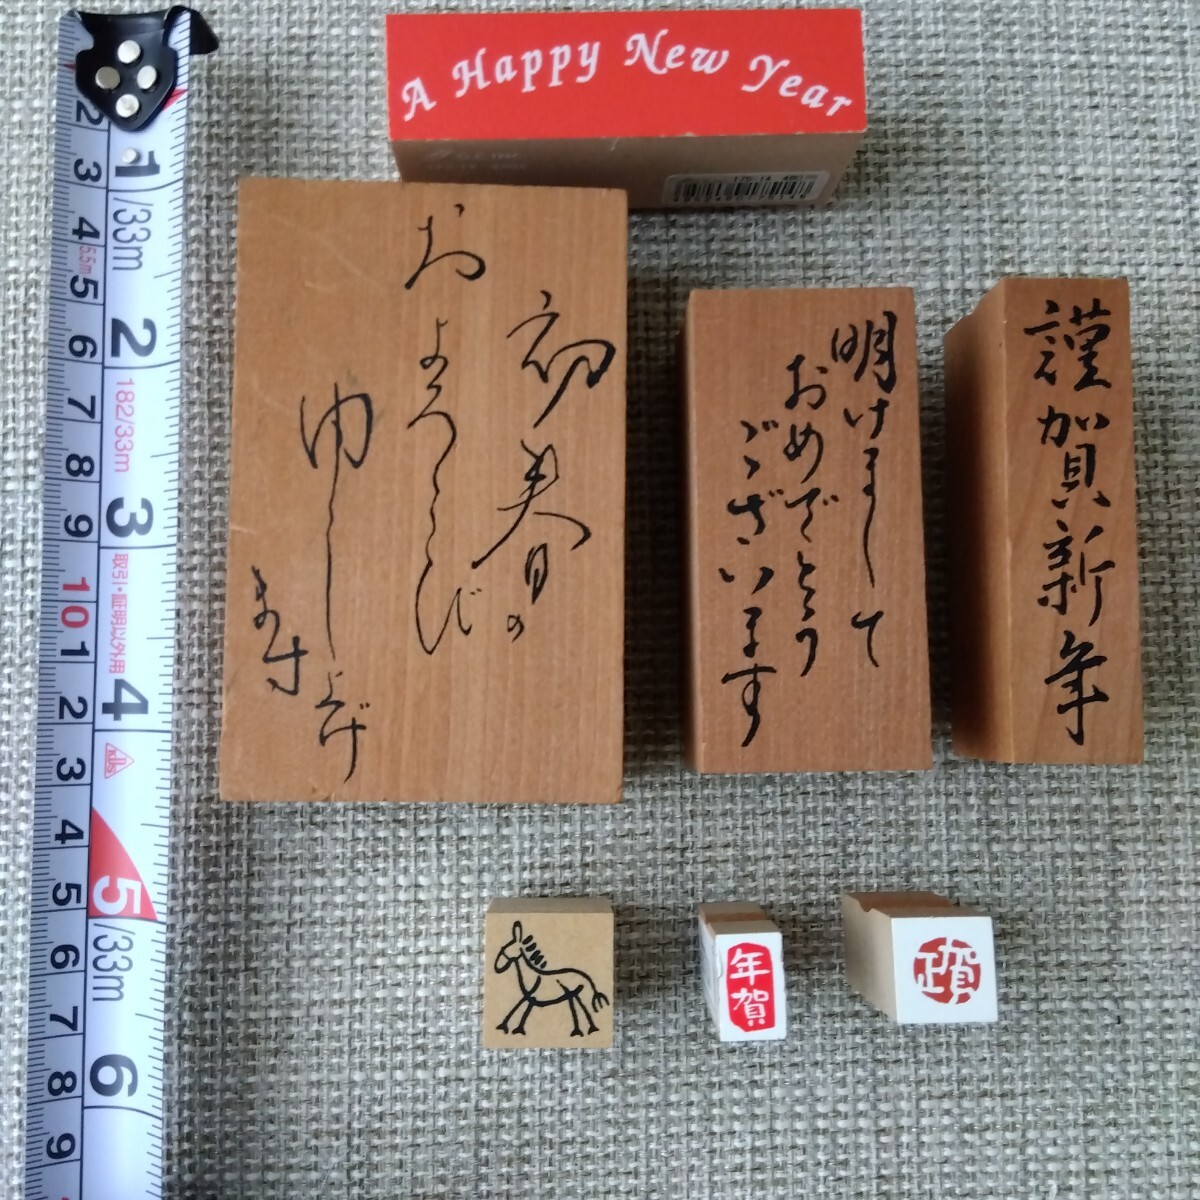 A Happy New Year
初春の
およろこび
申し上げ
ます
明けまして
おめでとう
ございます
謹賀新年
年賀
賀正
1
/33m
2
182/33m
3
取引・証明以外用
4
5
/33m
6
2
3
4
5.5m
5
6
7
8
9
10
1
2
3
4
5
6
7
8
9